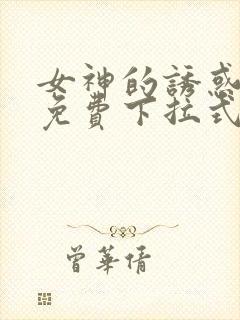 女神的誘惑
免費下拉式
曾華倩